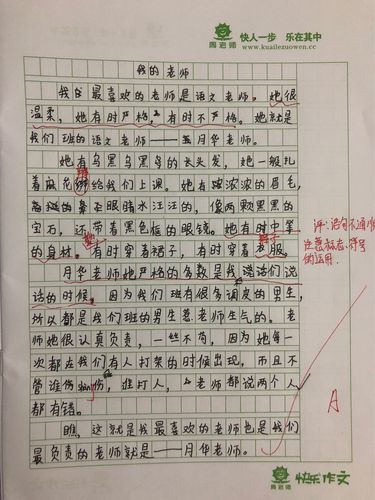 周老师
快人一步 乐在其中
www.kuailezuowen.cc
我的老师
我的最喜欢的老师是语文老师。她很
温柔,她有时严格,有时不严格。她就是
我们班的语文老师——月华老师。
她有乌黑乌黑的长头发,她一般扎
着麻花辫给我们上课。她有浓浓的眉毛,
眼睛水汪汪的,像两颗黑黑的
宝石,还带着黑色框的眼镜。她有时中等
的身材。有时穿着裙子,有时穿着色服。
裤子
月华老师她严格的多数是我说话们说
话的时候。因为我们班有很多调皮的男生,
所以都是我们班的男生惹老师生气的。老
师她很认真负责,一丝不苟,因为她每一
次都在我们有人打架的时候出现,而且不
管谁伤shang伤,谁打人,老师都说两个人
都有错。
瞧,这就是我最喜欢的老师也是我们
最负责的老师就是——月华老师。
评:语句不通顺
注意标点符号
的运用。
A
快乐作文